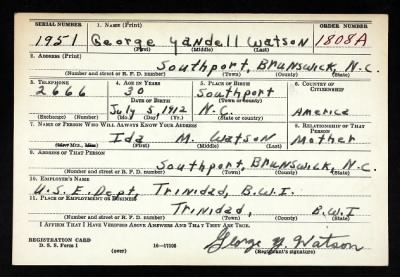 SERIAL NUMBER 1. NAME (Print) ORDER NUMBER
1951 George Yandell Watson 1808A
(First) (Middle) (Last)
2. ADDRESS (Print)
Southport, Brunswick, N.C.
(Number and street or R. F. D. number) (Town) (County) (State)
3. TELEPHONE 4. AGE IN YEARS 5. PLACE OF BIRTH 6. COUNTRY OF CITIZENSHIP
2666 30 Southport
DATE OF BIRTH (Town or county)
July 5, 1912 N.C. America
(Exchange) (No.) (Mo.) (Day) (Yr.) (State or country)
7. NAME OF PERSON WHO WILL ALWAYS KNOW YOUR ADDRESS 8. RELATIONSHIP OF THAT PERSON
Ida M. Watson Mother
(Mr., Mrs., Miss) (First) (Middle) (Last)
9. ADDRESS OF THAT PERSON
Southport, Brunswick, N.C.
(Number and street or R. F. D. number) (Town) (County) (State)
10. EMPLOYER'S NAME
U.S.E. Dept, Trinidad, B.W.I.
11. PLACE OF EMPLOYMENT OR BUSINESS
Trinidad, B.W.I
(Number and street or R. F. D. number) (Town) (County) (State)
I AFFIRM THAT I HAVE VERIFIED ABOVE ANSWERS AND THAT THEY ARE TRUE.
REGISTRATION CARD
D. S. S. Form 1 (over) 16-17105 George Y. Watson
(Registrant's signature)